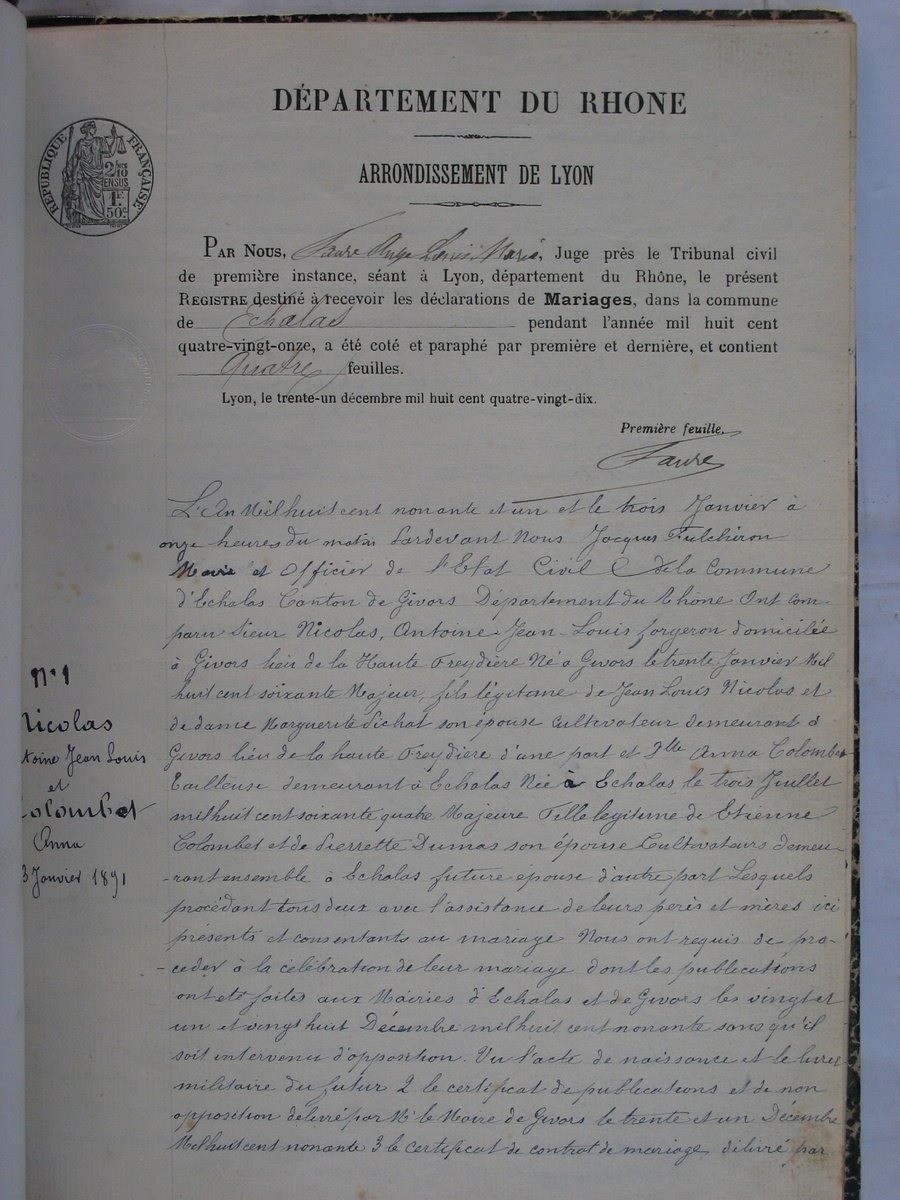 DÉPARTEMENT DU RHONE
ARRONDISSEMENT DE LYON
RÉPUBLIQUE FRANÇAISE
2/10 EN SUS
1F 50c
PAR NOUS, Faure Ange Louis Marie, Juge près le Tribunal civil
de première instance, séant à Lyon, département du Rhône, le présent
REGISTRE destiné à recevoir les déclarations de Mariages, dans la commune
de Echalas pendant l'année mil huit cent
quatre-vingt-onze, a été coté et paraphé par première et dernière, et contient
Quatre feuilles.
Lyon, le trente-un décembre mil huit cent quatre-vingt-dix.
Première feuille.
Faure
L'An Mil huit cent nonante et un et le trois Janvier à
onze heures du matin Pardevant Nous Jacques Fulchiron
Maire et Officier de l'Etat Civil de la Commune
d'Echalas Canton de Givors Département du Rhône Ont com-
paru Sieur Nicolas, Antoine-Jean-Louis forgeron domicilée
à Givors lieu de la Haute Freydière Né à Givors le trente Janvier Mil
huit cent soixante Majeur, fils légitame de Jean Louis Nicolas et
de dame Marguerite Pichat son épouse Cultivateur demeurant à
Givors lieu de la haute Freydière d'une part et Dlle Anna Colombet
Tailleuse demeurant à Echalas Née à Echalas le trois Juillet
mil huit cent soixante quatre Majeure Fille legitime de Etienne
Colombet et de Pierrette Dumas son épouse Cultivateurs demeu-
-rant ensemble à Echalas future épouse d'autre part Lesquels
procédant tous deux avec l'assistance de leurs perès et mères ici
présents et consentants au mariage Nous ont requis de pro-
-ceder à la célébration de leur mariage dont les publications
ont eté faites aux Mairies d'Echalas et de Givors les vingt et
un et vingt huit Décembre mil huit cent nonante sans qu'il
soit intervenu d'opposition. Vu l'acte de naissance et le livret
militaire du futur 2 le certificat de publications et de non
opposition délivré par Mr le Maire de Givors le trente et un Décembre
Mil huit cent nonante 3 le certificat de contrat de mariage délivré par
N° 1
Nicolas
toine Jean Louis
et
Colombet
Anna
3 Janvier 1891